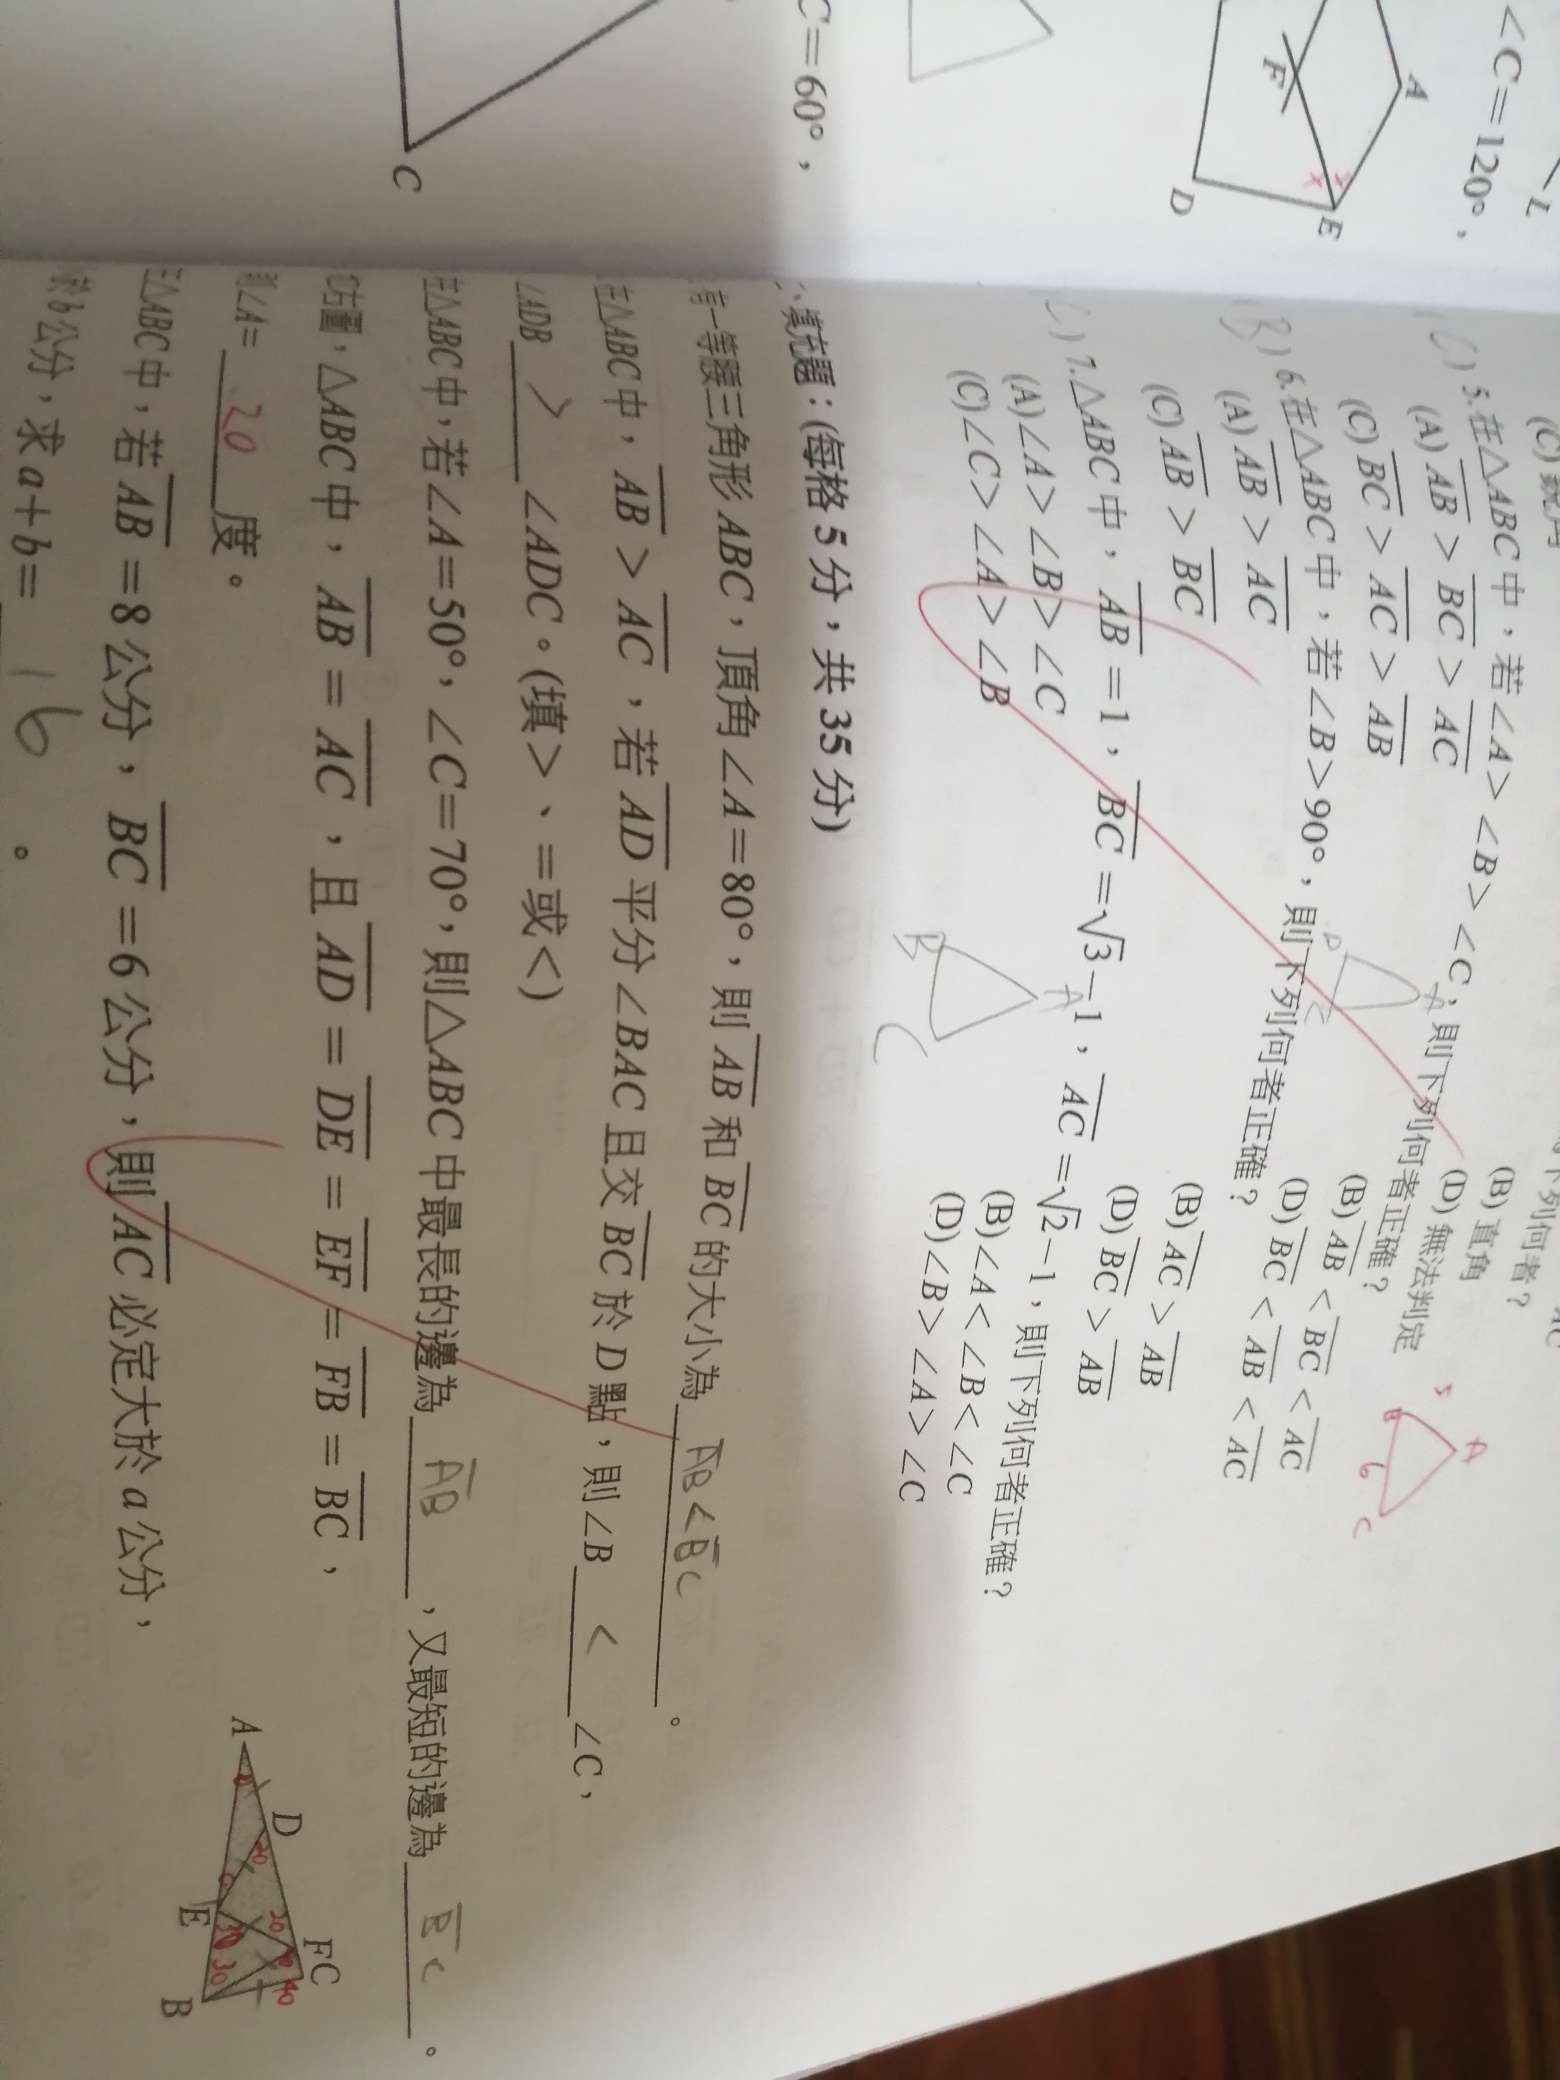 ∠C=120°，
L
A
F
E
D
C=60°，
C
(C)
下列何者？
(B) 直角
(D) 無法判定
5.在△ABC中，若∠A>∠B>∠C，則下列何者正確？
(A) AB > BC > AC
(B) AB < BC < AC
(C) BC > AC > AB
(D) BC < AB < AC
(B) 6.在△ABC中，若∠B>90°，則下列何者正確？
(A) AB > AC
(B) AC > AB
(C) AB > BC
(D) BC > AB
7.△ABC中，AB=1，BC=√3−1，AC=√2−1，則下列何者正確？
(A)∠A>∠B>∠C
(B)∠A<∠B<∠C
(C)∠C>∠A>∠B
(D)∠B>∠A>∠C
A
B
C
A
C
A
B
C
5
6
填充題：(每格5分，共35分)
有一等腰三角形ABC，頂角∠A=80°，則AB和BC的大小為 AB<BC 。
在△ABC中，AB>AC，若AD平分∠BAC且交BC於D點，則∠B < ∠C，
∠ADB > ∠ADC。(填>、=或<)
在△ABC中，若∠A=50°，∠C=70°，則△ABC中最長的邊為 AB ，又最短的邊為 BC 。
右圖，△ABC中，AB=AC，且AD=DE=EF=FB=BC，
則∠A= 20 度。
A
D
F C
E
B
△ABC中，若AB=8公分，BC=6公分，則AC必定大於a公分，
於b公分，求a+b= 16 。